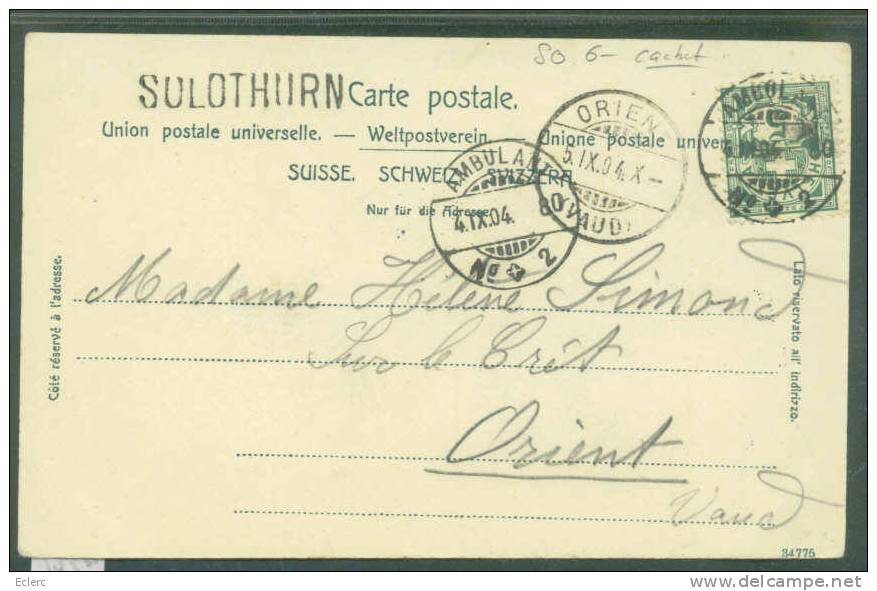 SO 6- cachet
SOLOTHURN Carte postale.
Union postale universelle. — Weltpostverein — Unione postale univer
SUISSE. SCHWEIZ. SVIZZERA
Nur für die Adresse
ORIENT
5.IX.04.X-
(VAUD)
AMBULANT
4.IX.04. 80
No 2
AMBUL
4.IX.04. 80
No 2
Côté réservé à l'adresse.
Lato riservato all' indirizzo.
Madame Hélène Simond
Sur le Crêt
Orient
Vaud
34775
Eclerc
www.delcampe.net